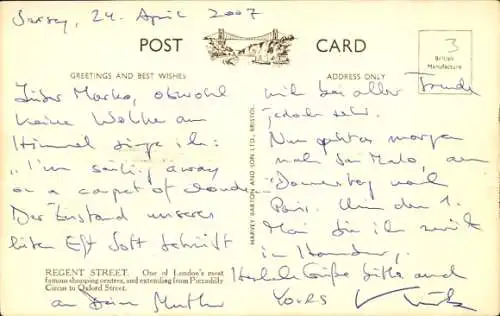 Jersey, 24. April 2007
POST CARD
3
British
Manufacture
GREETINGS AND BEST WISHES
ADDRESS ONLY
Lieber Marko, obwohl
keine Wolke am
Himmel singe ich:
"I'm sailing away
on a carpet of clouds"
Der Zustand unseres
lieben
mich bei aller Freude
jedoch sehr.
Nun geht es morgen
nach San Malo, am
Donnerstag nach
Paris. Um den 1.
Mai bin ich zurück
in
Herzliche Grüße bitte auch
an Deine Mutter
YOURS
HARVEY BARTON AND SON LTD., BRISTOL
REGENT STREET. One of London's most
famous shopping centres, and extending from Piccadilly
Circus to Oxford Street.